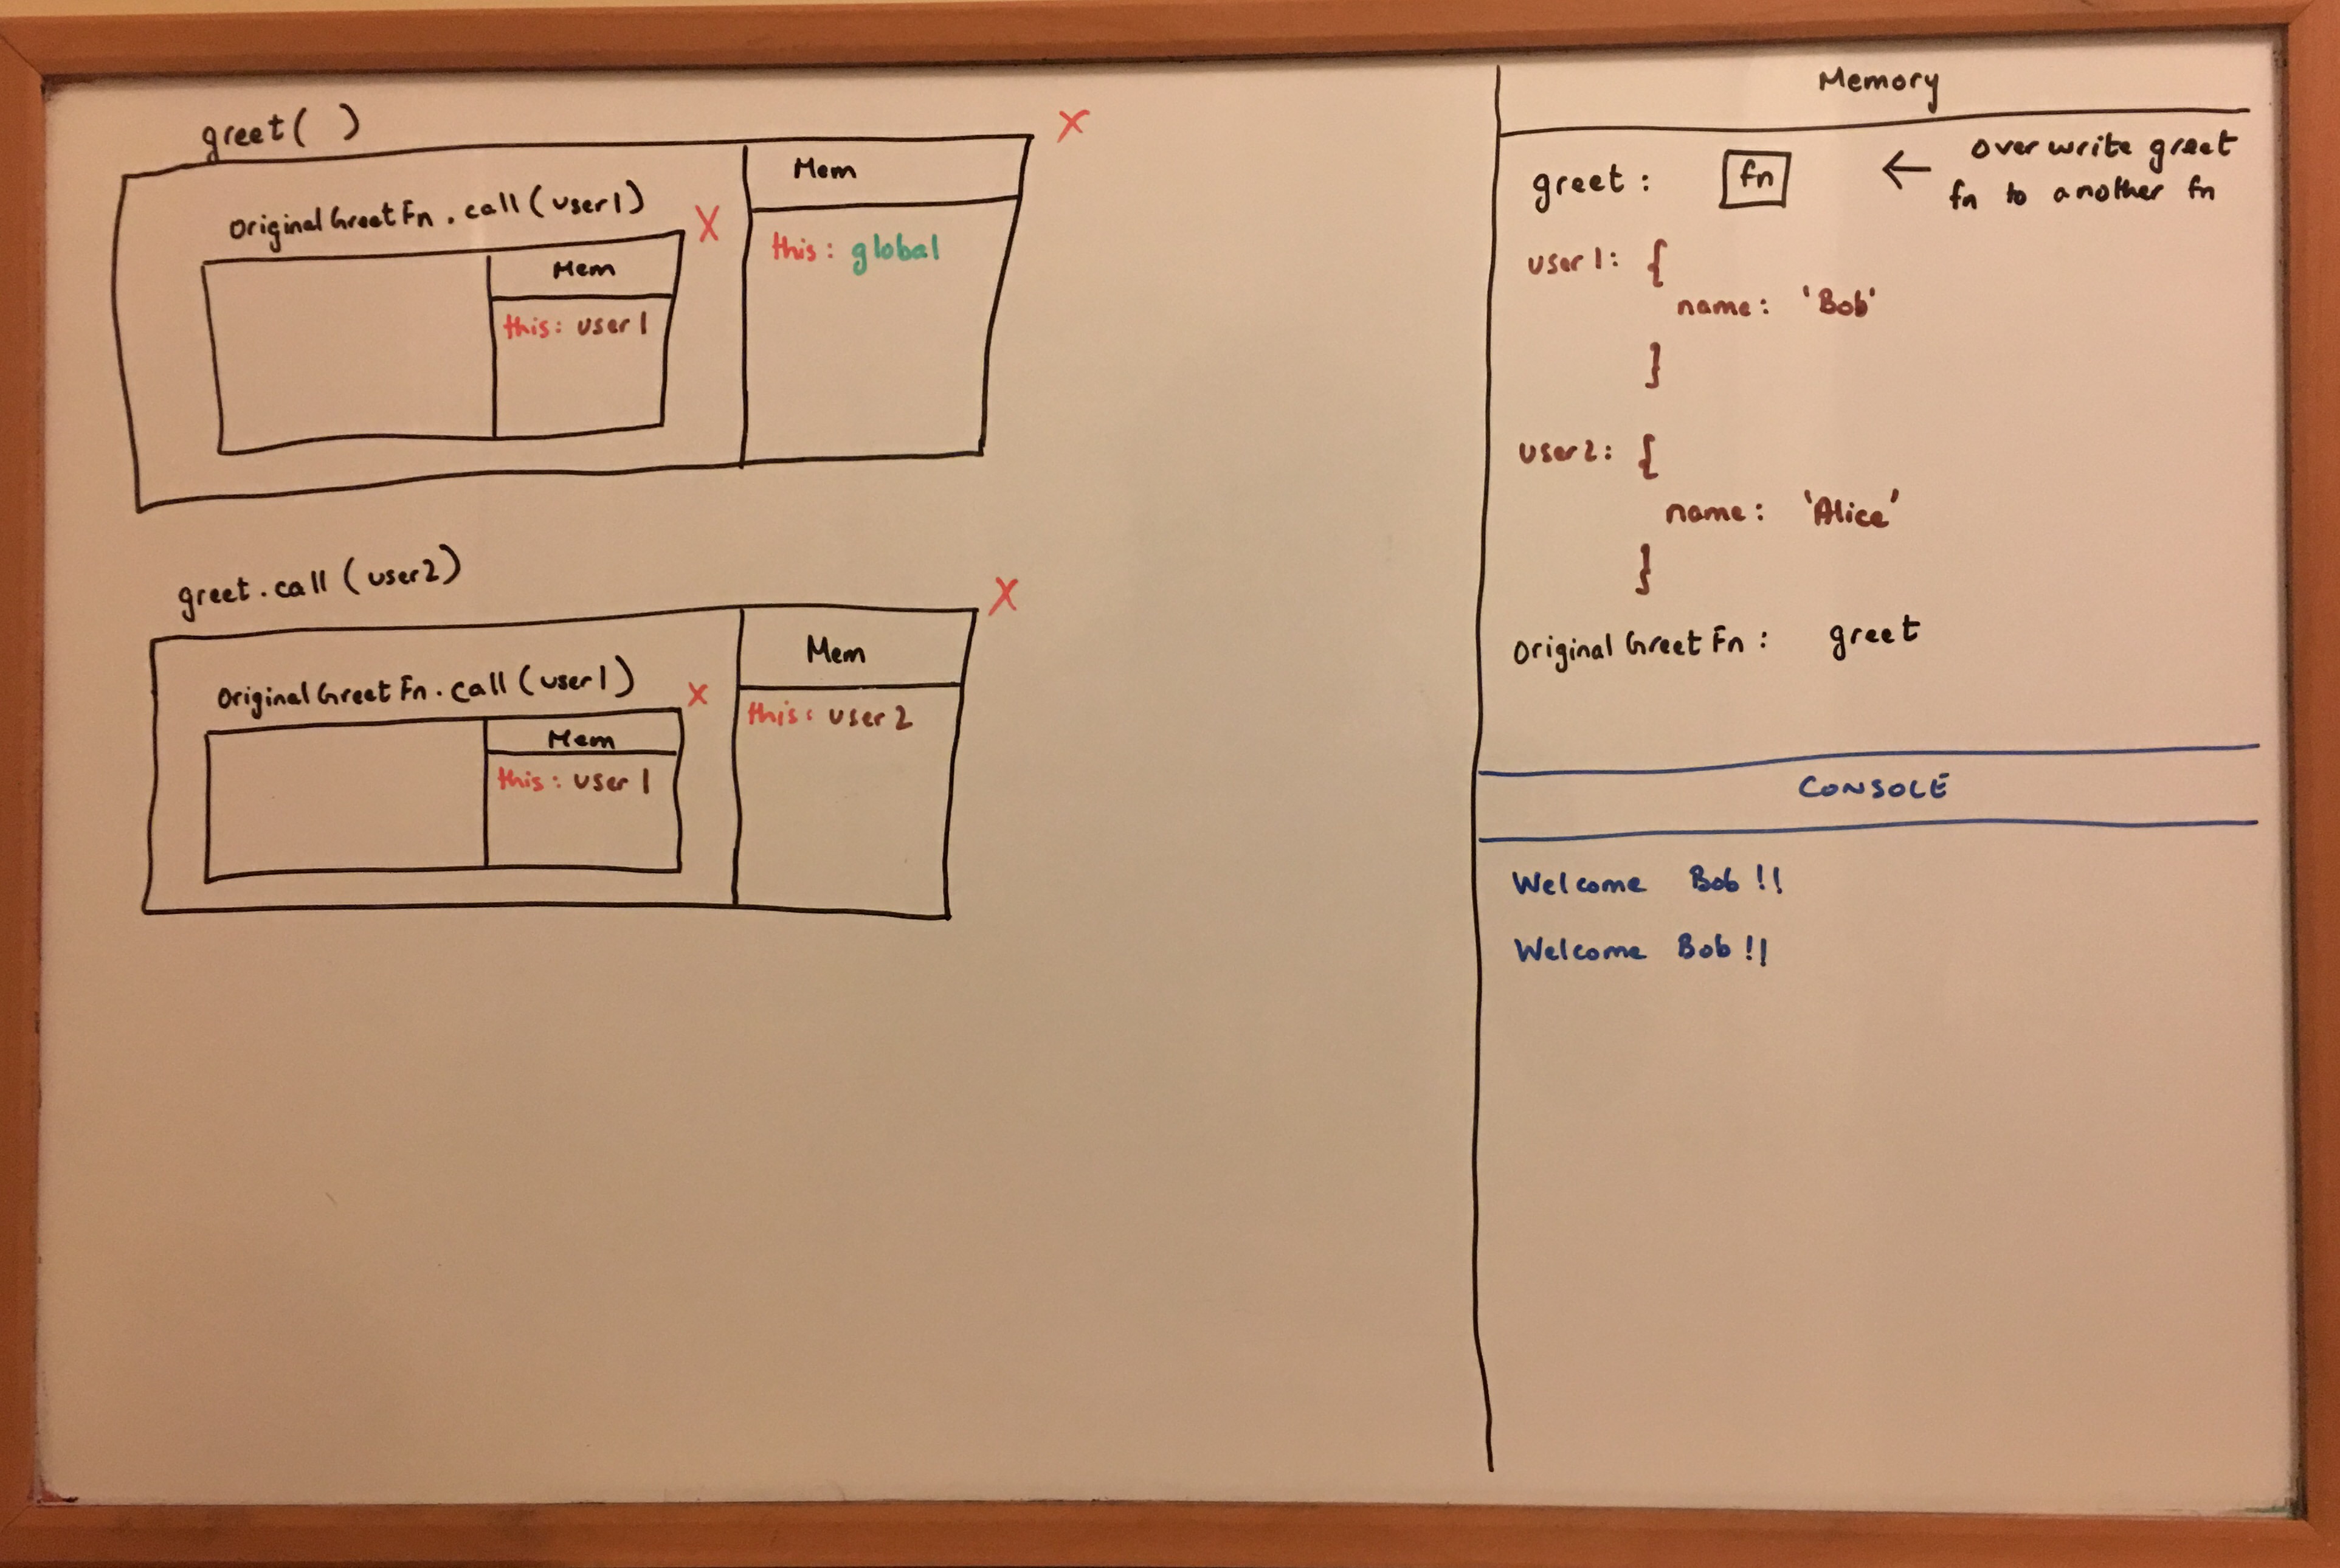 greet( )
X
Original Greet Fn . call (user1)
X
Mem
this: global
Mem
this: user1
greet . call (user2)
X
Original Greet Fn . call (user1)
X
Mem
this: user2
Mem
this: user1
Memory
greet : fn ← over write greet
fn to another fn
user1: {
name: 'Bob'
}
user2: {
name: 'Alice'
}
Original Greet Fn : greet
CONSOLE
Welcome Bob !!
Welcome Bob !!